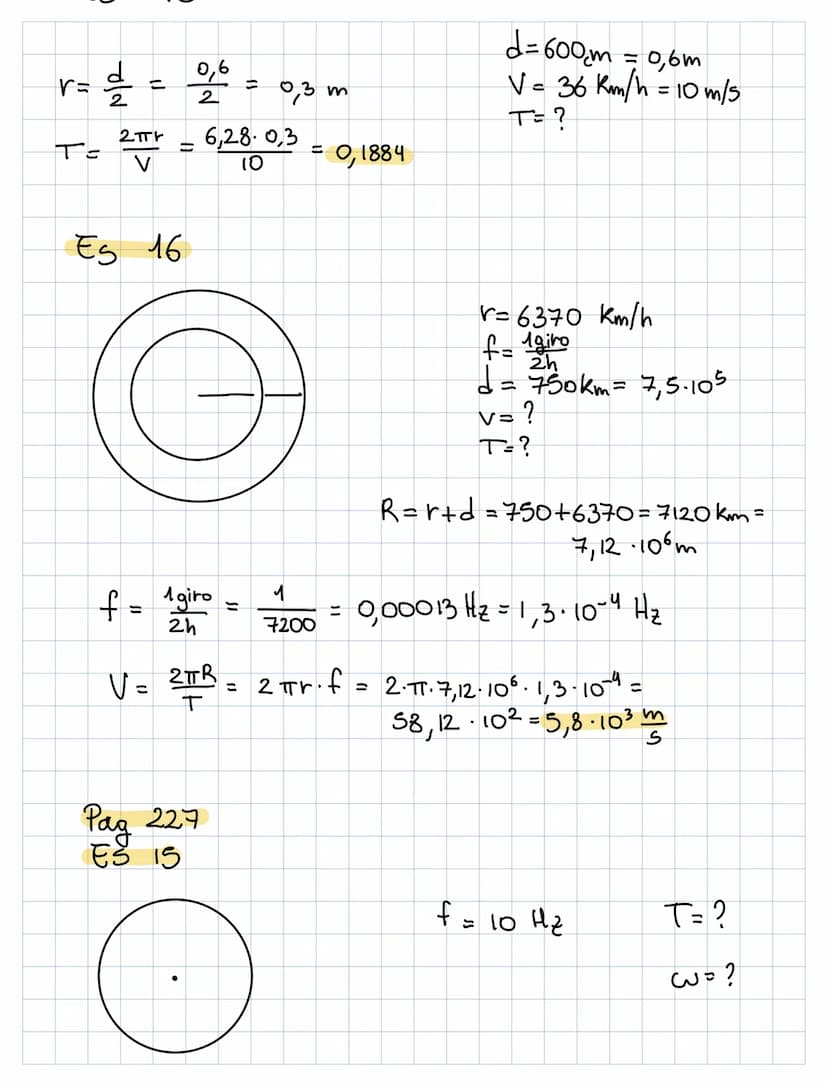 d = 600 cm = 0,6 m
r = d/2 = 0,6/2 = 0,3 m
V = 36 Km/h = 10 m/s
T = ?
T = 2πr/V = 6,28·0,3/10 = 0,1884
Es 16
r = 6370 Km/h
f = 1giro/2h
d = 750 km = 7,5·10⁵
v = ?
T = ?
R = r+d = 750+6370 = 7120 km =
7,12·10⁶ m
f = 1giro/2h = 1/7200 = 0,00013 Hz = 1,3·10⁻⁴ Hz
V = 2πR/T = 2πr·f = 2·π·7,12·10⁶·1,3·10⁻⁴ =
58,12·10² = 5,8·10³ m/s
Pag 227
ES 15
f = 10 Hz T = ?
ω = ?